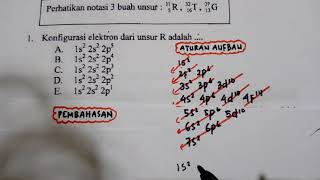 Perhatikan notasi 3 buah unsur : ¹¹₅R, ³²₁₆T, ²⁷₁₃G
1. Konfigurasi elektron dari unsur R adalah ....
A. 1s² 2s² 2p⁵
B. 1s² 2s² 2p⁴
C. 1s² 2s² 2p³
D. 1s² 2s² 2p²
E. 1s² 2s² 2p¹
PEMBAHASAN
ATURAN AUFBAU
1s²
2s² 2p⁶
3s² 3p⁶ 3d¹⁰
4s² 4p⁶ 4d¹⁰ 4f¹⁴
5s² 5p⁶ 5d¹⁰
6s² 6p⁶
7s²
1s²